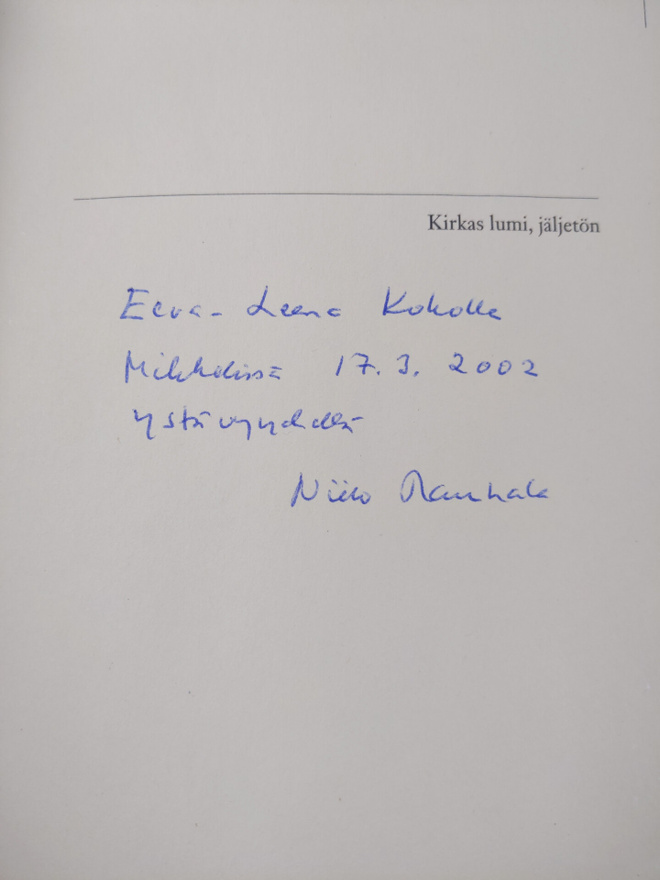 Kirkas lumi, jäljetön
Eeva-Leena Kokolle
Mikkelissä 17.3.2002
ystävyydellä
Niilo Rauhala